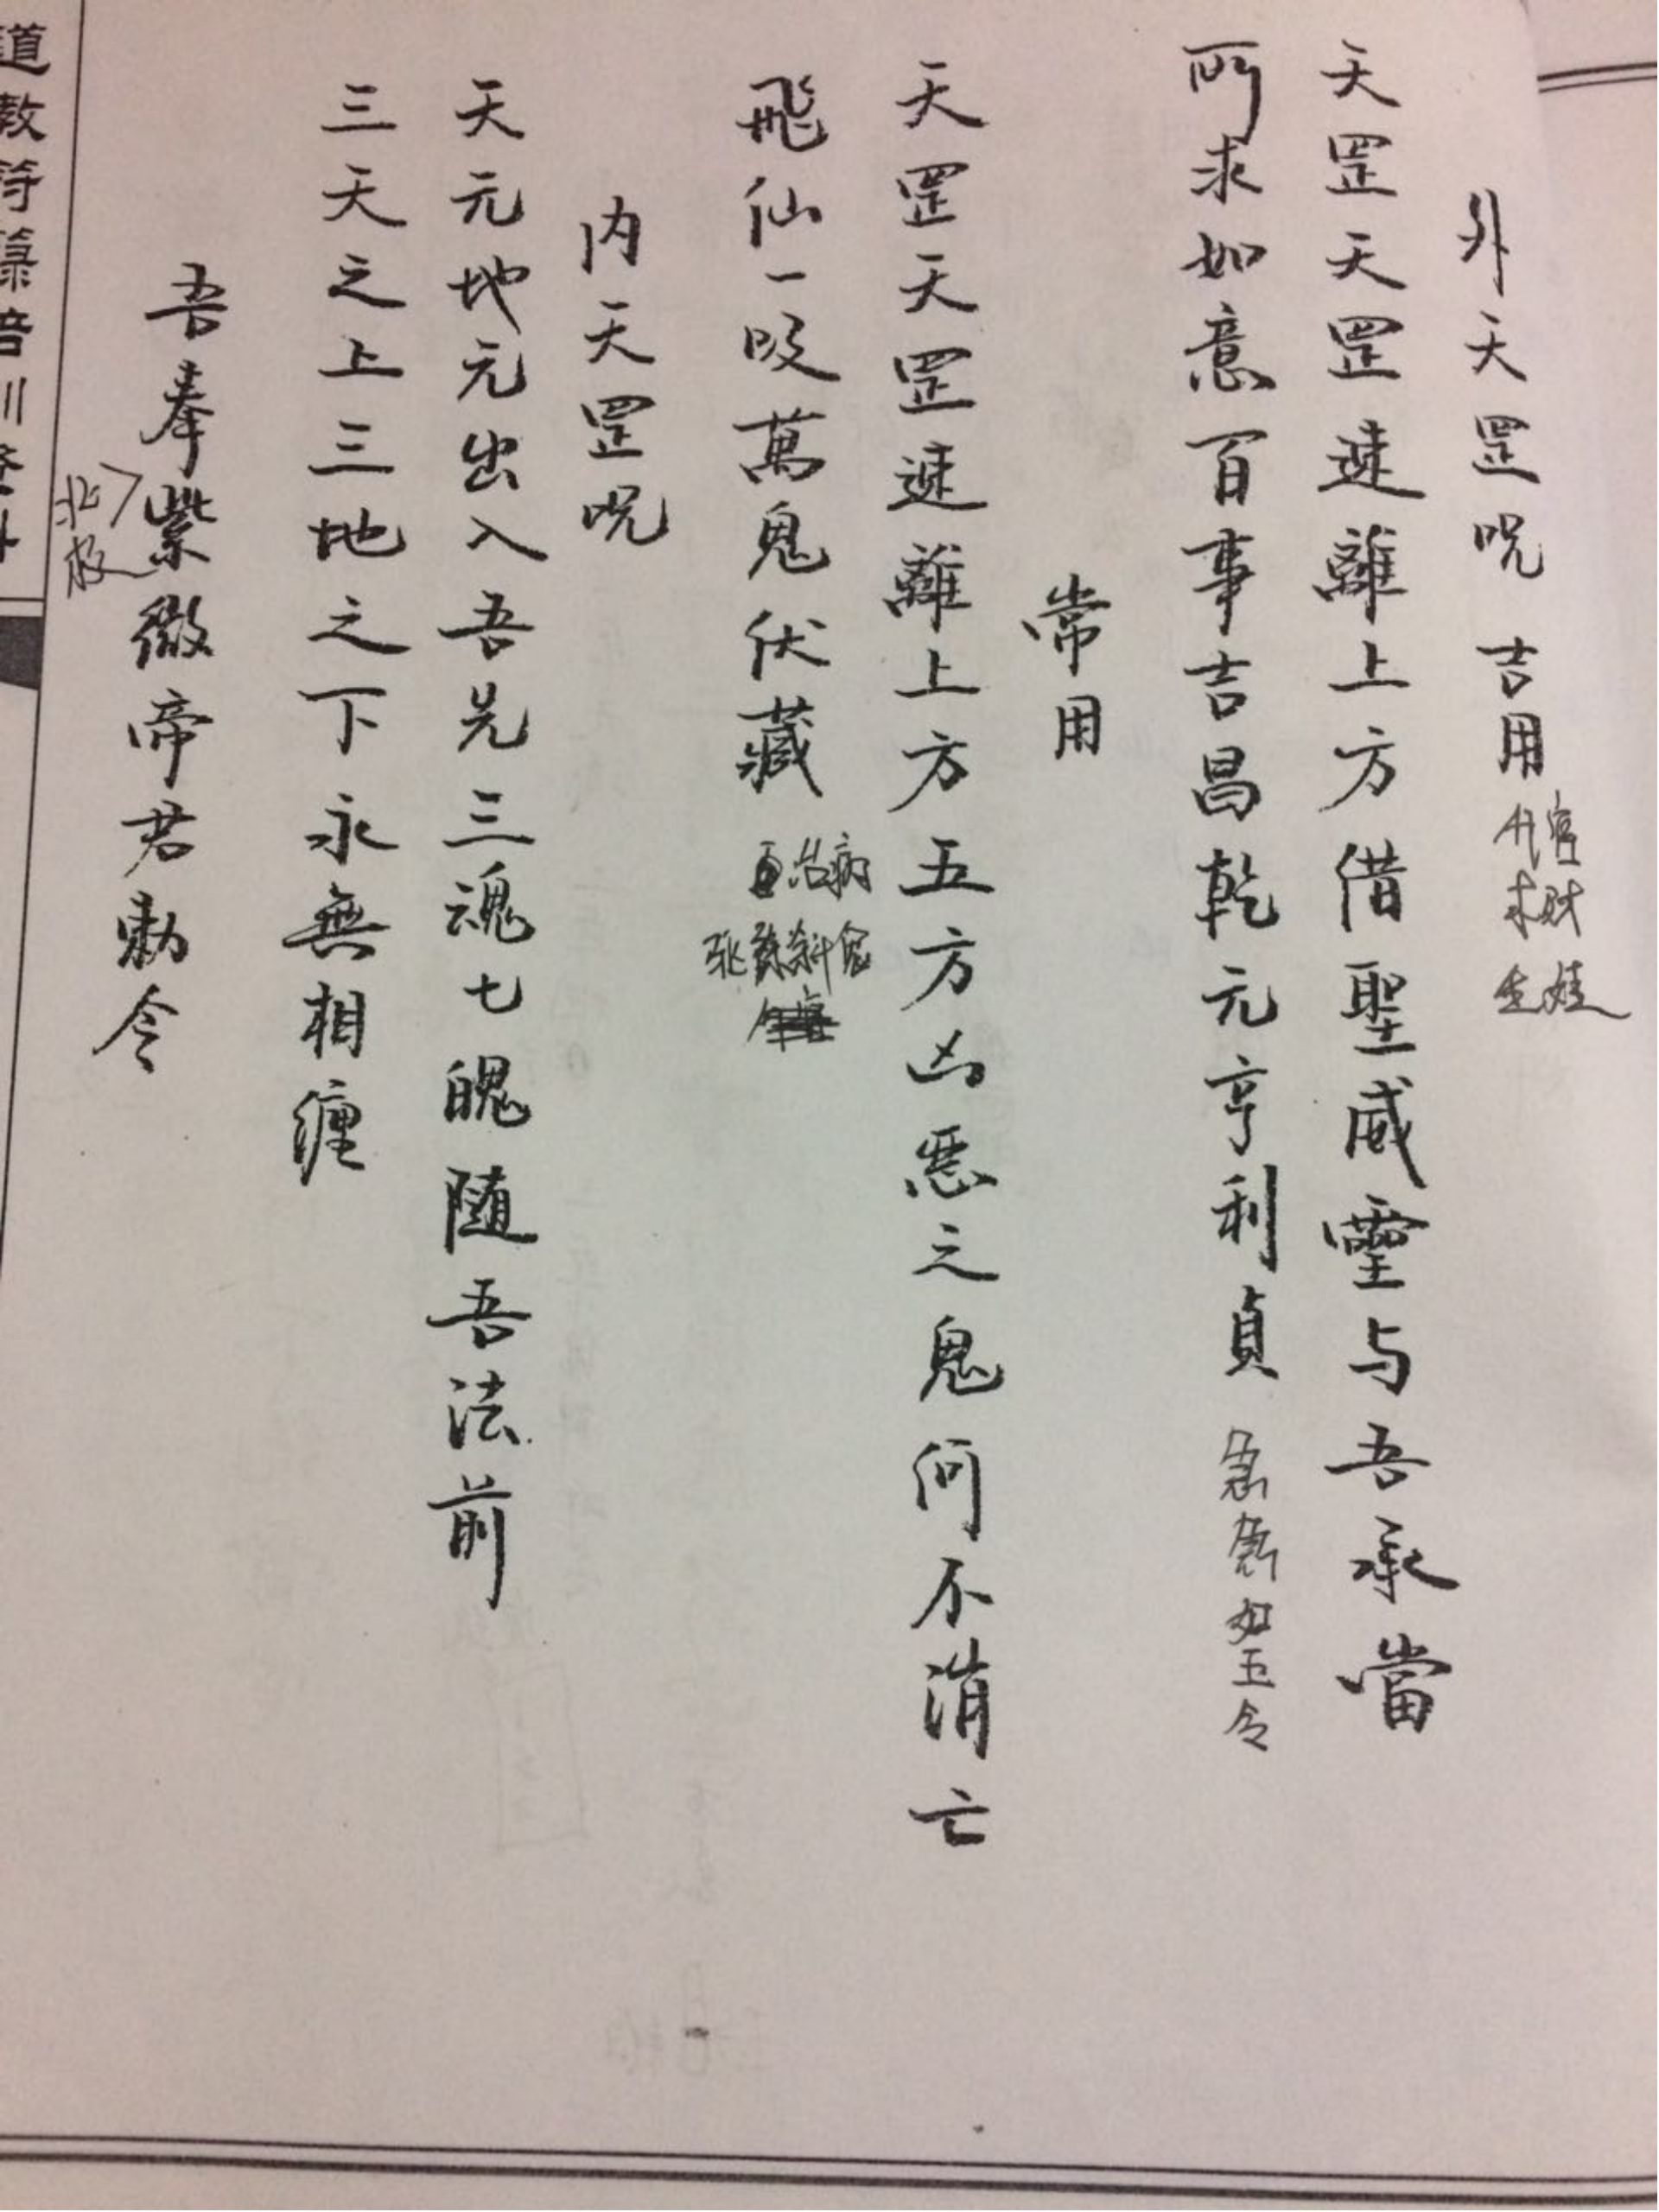 外天罡咒 吉用
升官
求财
生娃
天罡天罡速離上方借聖威靈与吾承當
所求如意百事吉昌乾元亨利貞 急急如玉令
常用
天罡天罡速離上方五方凶惡之鬼何不消亡
飛仙一吸萬鬼伏藏
治病
内天罡咒
天元地元出入吾先三魂七魄随吾法前
三天之上三地之下永無相缠
吾奉紫微帝君勅令
北极
道教符箓培训